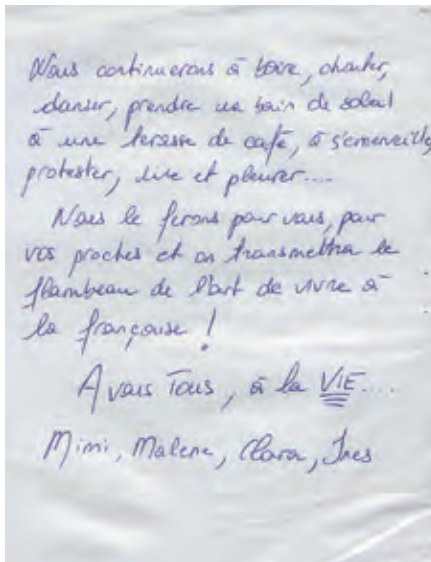 Nous continuerons à boire, chanter,
danser, prendre un bain de soleil
à une terasse de café, à s'émerveiller,
protester, rire et pleurer....
Nous le ferons pour vous, pour
vos proches et on transmettra le
flambeau de l'art de vivre à
la française !
A vous Tous, à la VIE....
Mimi, Malene, Clara, Ines